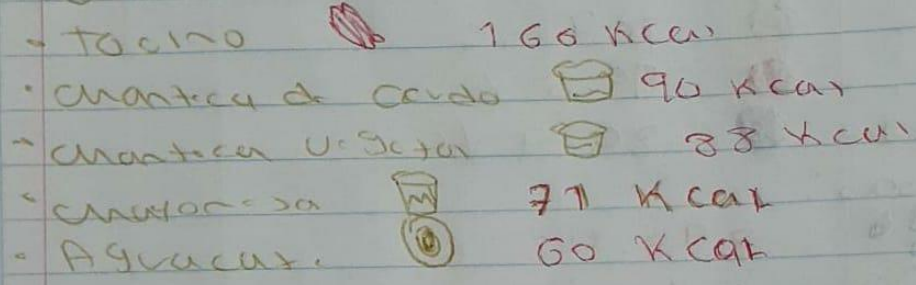 - Tocino 166 Kcal
• Manteca de Cerdo 90 Kcal
- Manteca Vegetal 88 Kcal
• Mayonesa 71 Kcal
• Aguacate. 60 Kcal